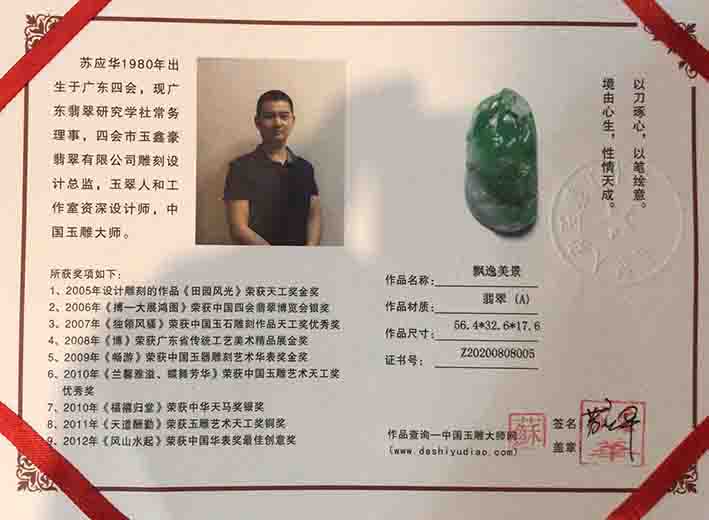 苏应华1980年出
生于广东四会，现广
东翡翠研究学社常务
理事，四会市玉鑫豪
翡翠有限公司雕刻设
计总监，玉翠人和工
作室资深设计师，中
国玉雕大师。
以刀琢心，以笔绘意。
境由心生，性情天成。
所获奖项如下：
1、2005年设计雕刻的作品《田园风光》荣获天工奖金奖
2、2006年《搏一大展鸿图》荣获中国四会翡翠博览会银奖
3、2007年《独领风骚》荣获中国玉石雕刻作品天工奖优秀奖
4、2008年《博》荣获广东省传统工艺美术精品展金奖
5、2009年《畅游》荣获中国玉器雕刻艺术华表奖金奖
6、2010年《兰馨雅溢、蝶舞芳华》荣获中国玉雕艺术天工奖
优秀奖
7、2010年《福禧归堂》荣获中华天马奖银奖
8、2011年《天道酬勤》荣获玉雕艺术天工奖铜奖
9、2012年《风山水起》荣获中国华表奖最佳创意奖
作品名称：飘逸美景
作品材质：翡翠（A）
作品尺寸：56.4*32.6*17.6
证书号：Z20200808005
作品查询—中国玉雕大师网
(www.dashiyudiao.com)
蘇
签名
盖章